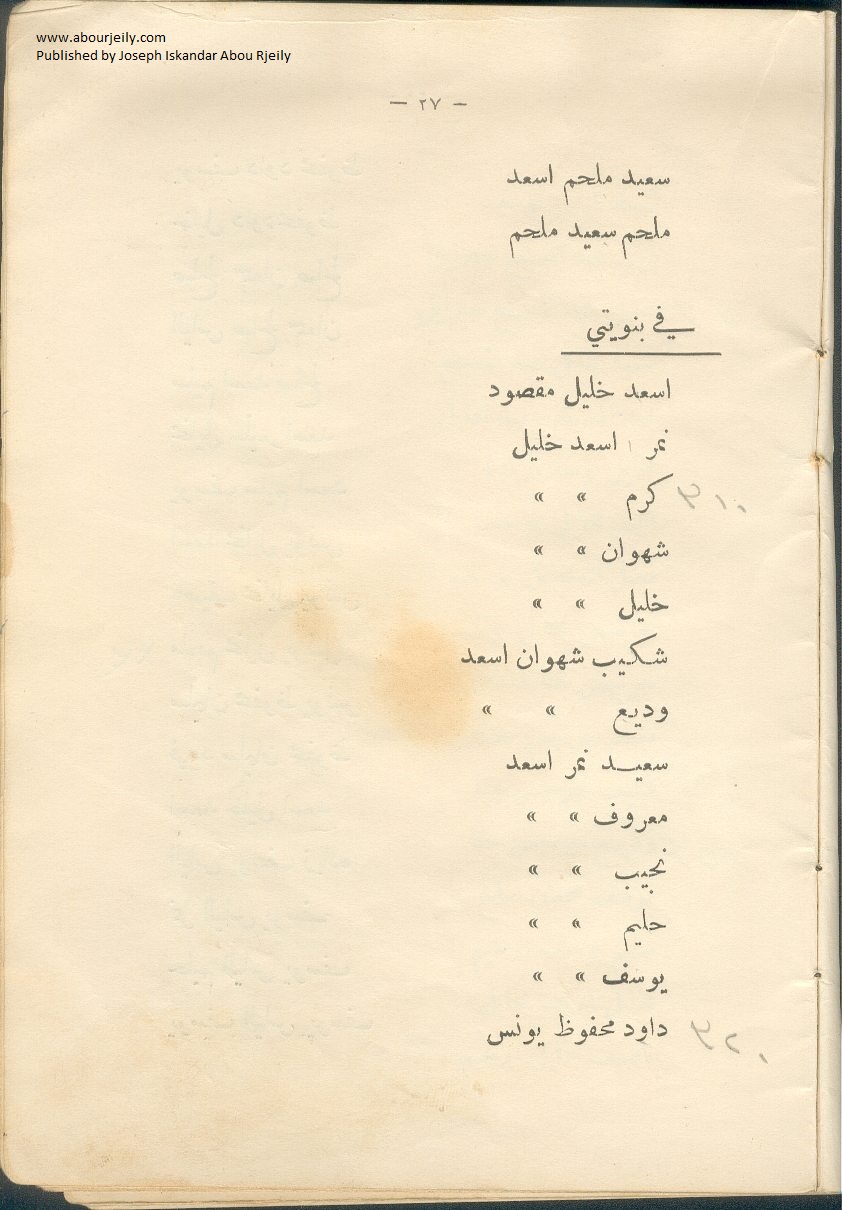 www.abourjeily.com
Published by Joseph Iskandar Abou Rjeily
— ٢٧ —
سعيد ملحم اسعد
ملحم سعيد ملحم
في بنويتي
اسعد خليل مقصود
نمر اسعد خليل
كرم » »
شهوان » »
خليل » »
شكيب شهوان اسعد
وديع » »
سعيد نمر اسعد
معروف » »
نجيب » »
حليم » »
يوسف » »
داود محفوظ يونس